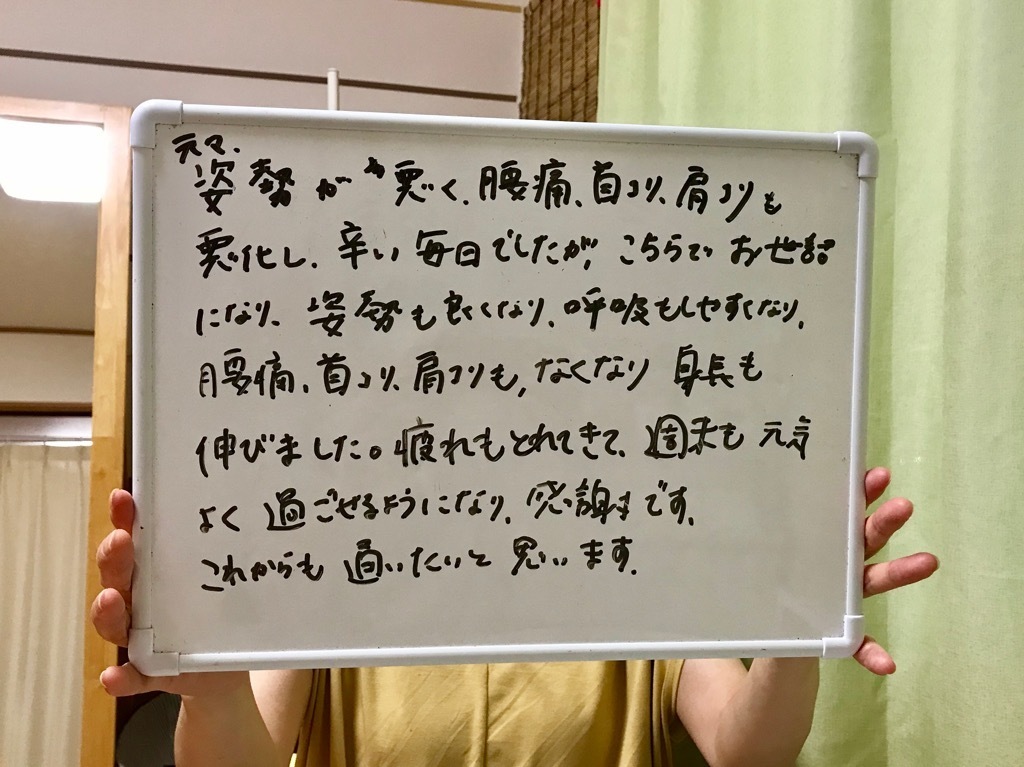 元々、
姿勢が悪く、腰痛、首コリ、肩コリも
悪化し、辛い毎日でしたが、こちらでお世話
になり、姿勢も良くなり、呼吸もしやすくなり、
腰痛、首コリ、肩コリも、なくなり身長も
伸びました。疲れもとれてきて、週末も元気
よく過ごせるようになり、感謝です。
これからも通いたいと思います。